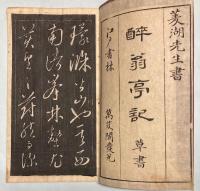 菱湖先生書
醉翁亭記 草書
江戸書林 萬笈閣發兌
環滁皆山也其西
南諸峯林壑尤
美望之蔚然而深